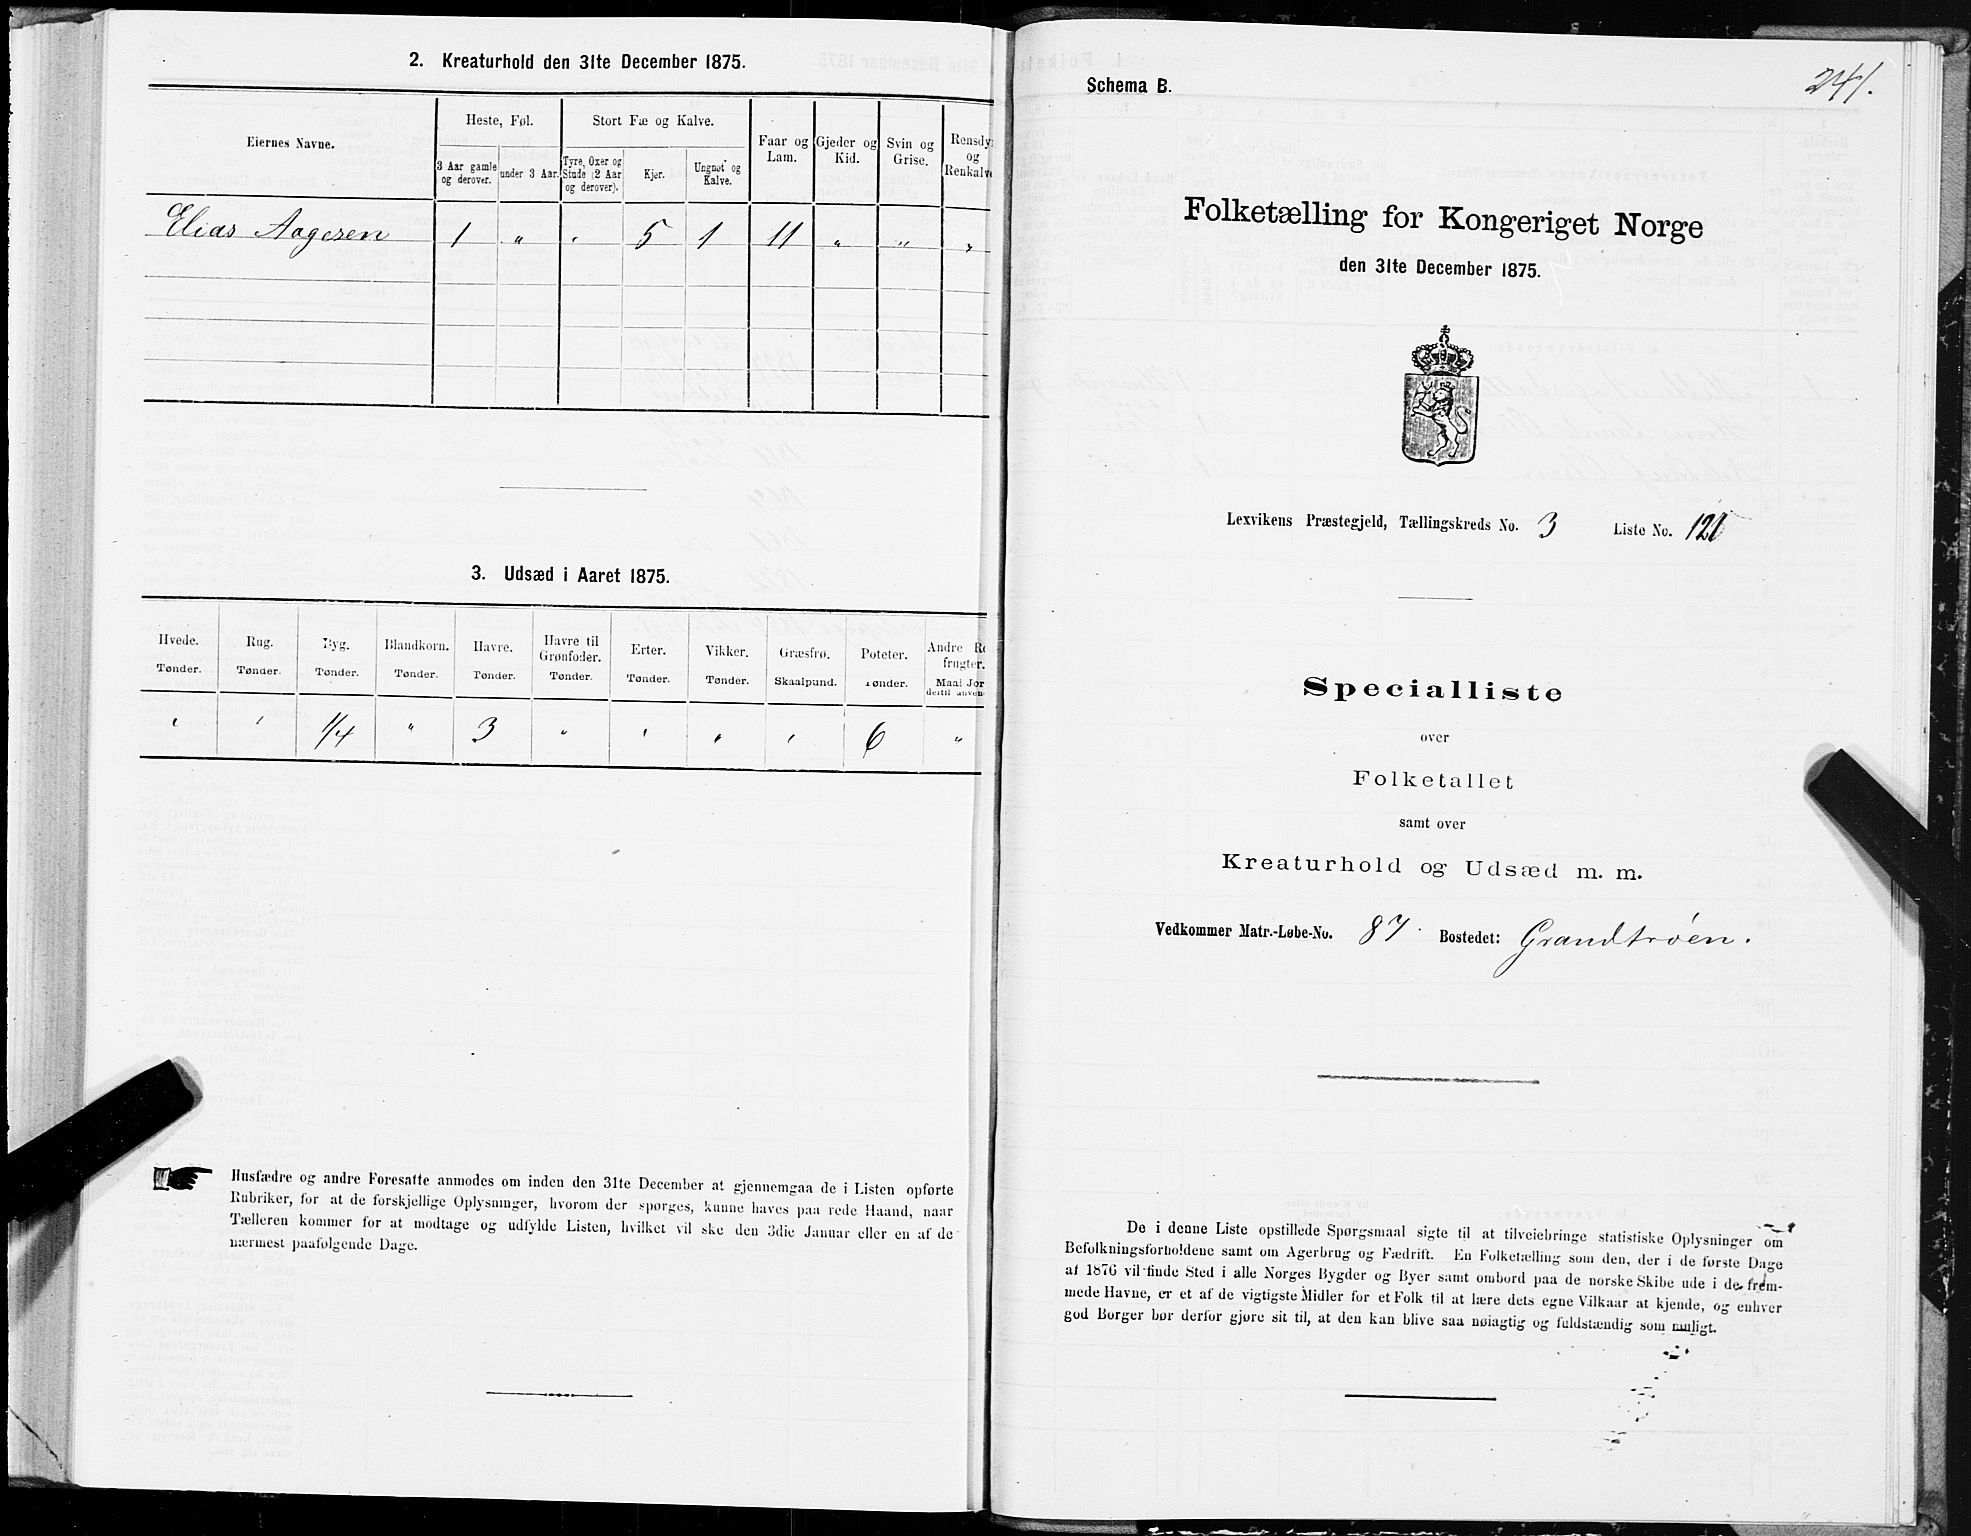 2. Kreaturhold den 31te December 1875.
Eiernes Navne.
Heste, Føl.
Stort Fæ og Kalve.
Faar og Lam.
Gjeder og Kid.
Svin og Grise.
Rensdy og Renkalv
3 Aar gamle og derover.
under 3 Aar.
Tyre, Oxer og Stude (2 Aar og derover).
Kjer.
Ungnøt og Kalve.
Elias Aagesen 1 " " 5 1 11 " " "
3. Udsæd i Aaret 1875.
Hvede. Rug. Byg. Blandkorn. Havre. Havre til Grønfoder. Erter. Vikker. Græsfrø. Poteter. Andre Ro frugter.
Tønder. Tønder. Tønder. Tønder. Tønder. Tønder. Tønder. Tønder. Skaalpund. Tønder. Maal Jor dertil anvend
" " 1/4 " 3 " " " " 6 "
Husfædre og andre Foresatte anmodes om inden den 31te December at gjennemgaa de i Listen opførte
Rubriker, for at de forskjellige Oplysninger, hvorom der spørges, kunne haves paa rede Haand, naar
Tælleren kommer for at modtage og udfylde Listen, hvilket vil ske den 3die Januar eller en af de
nærmest paafølgende Dage.
Schema B.
241.
Folketælling for Kongeriget Norge
den 31te December 1875.
Lexvikens Præstegjeld, Tællingskreds No. 3 Liste No.
Specialliste
over
Folketallet
samt over
Kreaturhold og Udsæd m. m.
Vedkommer Matr.-Løbe-No. 87. Bostedet: Grandtrøen.
De i denne Liste opstillede Spørgsmaal sigte til at tilveiebringe statistiske Oplysninger om
Befolkningsforholdene samt om Agerbrug og Fædrift. En Folketælling som den, der i de første Dage
af 1876 vil finde Sted i alle Norges Bygder og Byer samt ombord paa de norske Skibe ude i de frem-
mede Havne, er et af de vigtigste Midler for et Folk til at lære dets egne Vilkaar at kjende, og enhver
god Borger bør derfor gjøre sit til, at den kan blive saa nøiagtig og fuldstændig som muligt.